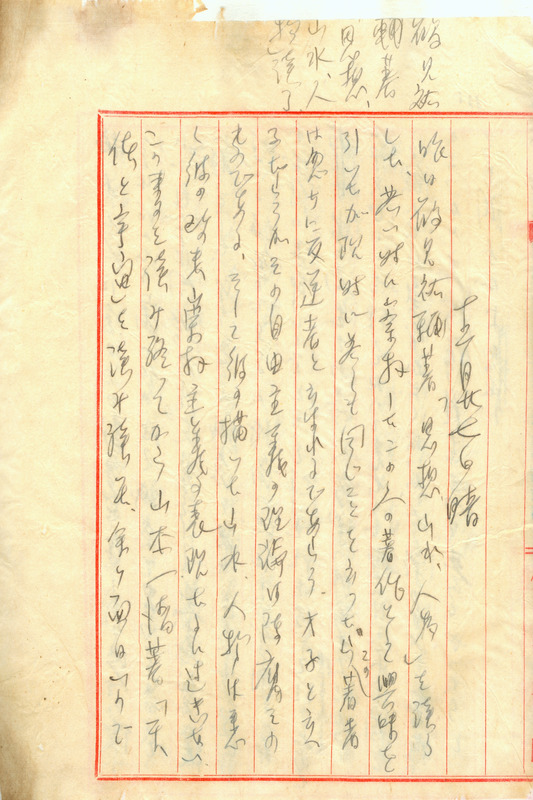 鶴見祐
輔著
思想、
山水、人
物読了
十二月廿七日晴
昨日鶴見祐輔著「思想山水、人物」を読了
した、若い時に崇拝したこの人の著作として興味を
引いたが現時に若しも同じことを云つたらこの著者
は忽ちに反逆者と云はれるであらう、才子と云へ
る だらうがその自由主義の理論は陳腐その
ものである、そして彼の描いた山水、人物は悪
く彼の 崇拝主義の表現たるに過ぎない
この書を読み終つてから山本一清著「天
体と宇宙」を読み始む、余り面白いので